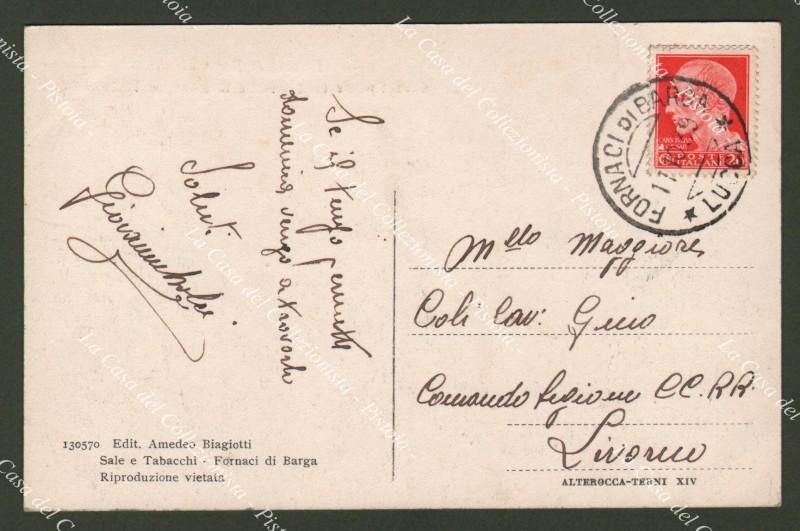 Se il tempo permette
domenica vengo a trovarti
Saluti
FORNACI DI BARGA * LUCCA *
POSTE
ITALIANE
M.llo Maggiore
Coli Cav. Gino
Comando Legione CC.RR.
Livorno
130570 Edit. Amedeo Biagiotti
Sale e Tabacchi - Fornaci di Barga
Riproduzione vietata
ALTEROCCA-TERNI XIV
La Casa del Collezionista - Pistoia